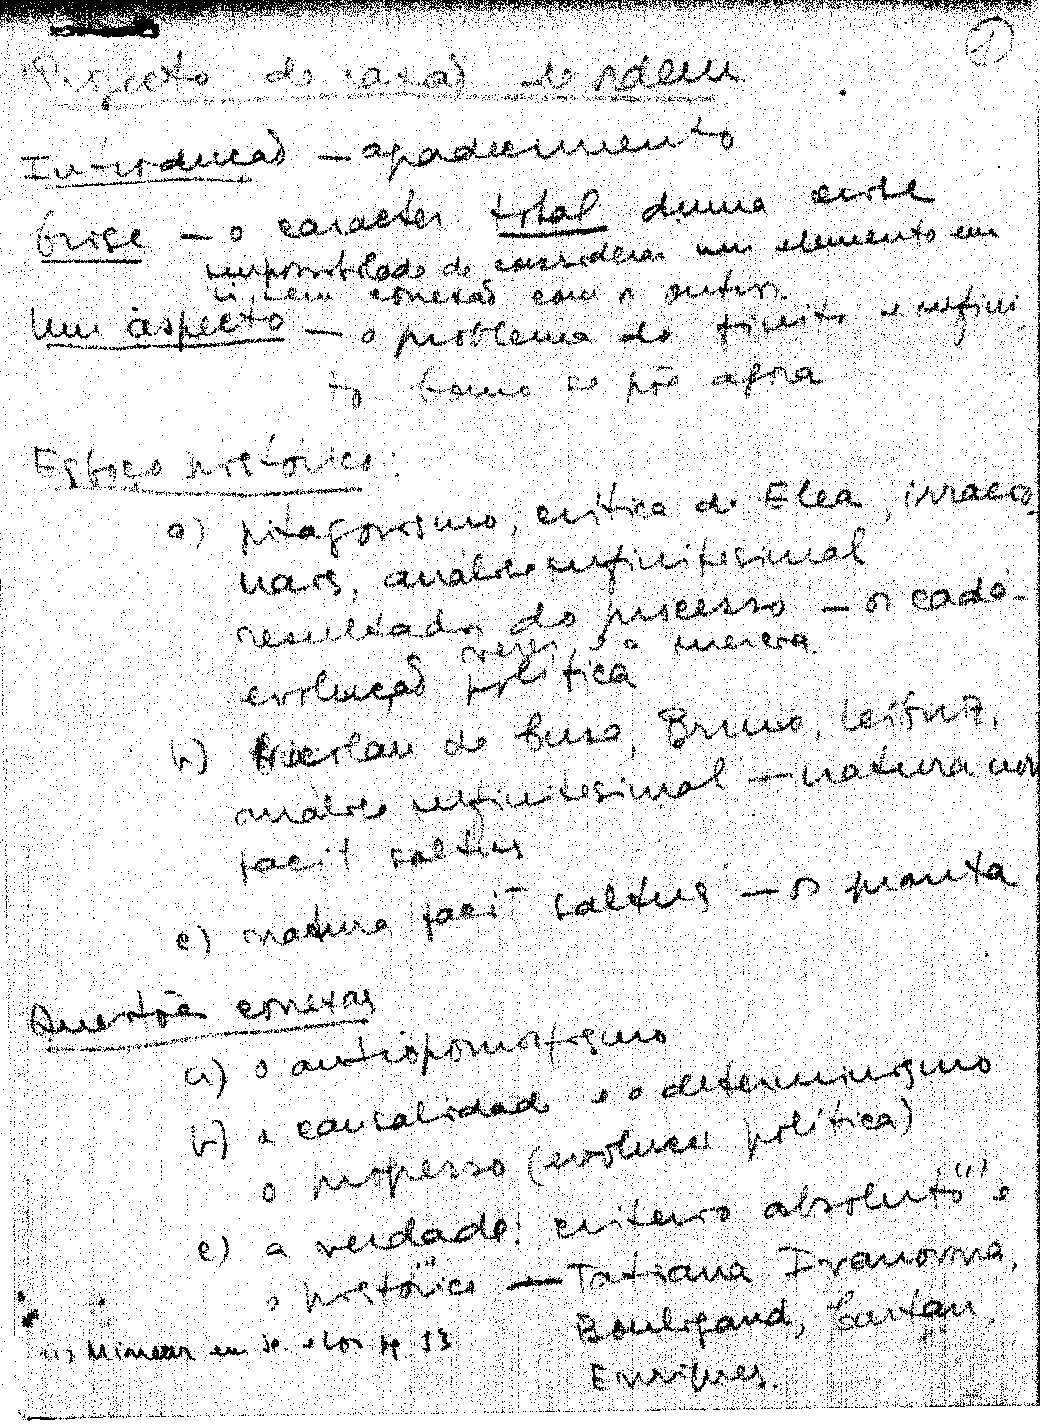 1
Projecto de casa de ordem
Introdução — agradecimento
Crise — o caracter total duma crise
impossibilidade de considerar um elemento em
si, sem conexão com o outro.
Um aspecto — o problema do finito e infini
to Como se põe agora
Esboço histórico:
a) pitagorismo, crítica de Elea, irracio
nais, análise infinitesimal
resultados do processo — os cadá-
veres, e a inércia
evolução política
b) Nicolau de Cusa, Bruno, Leibniz,
análise infinitesimal — natura non
facit saltus
c) natura facit saltus — os quanta
Questões conexas
a) o antropomorfismo
b) a causalidade e o determinismo
o progresso (evolução política)
c) a verdade: critério absoluto (1) e
o histórico — Tatiana Ivanovna,
Bouligand, Cartan,
Enriques.
(1) em